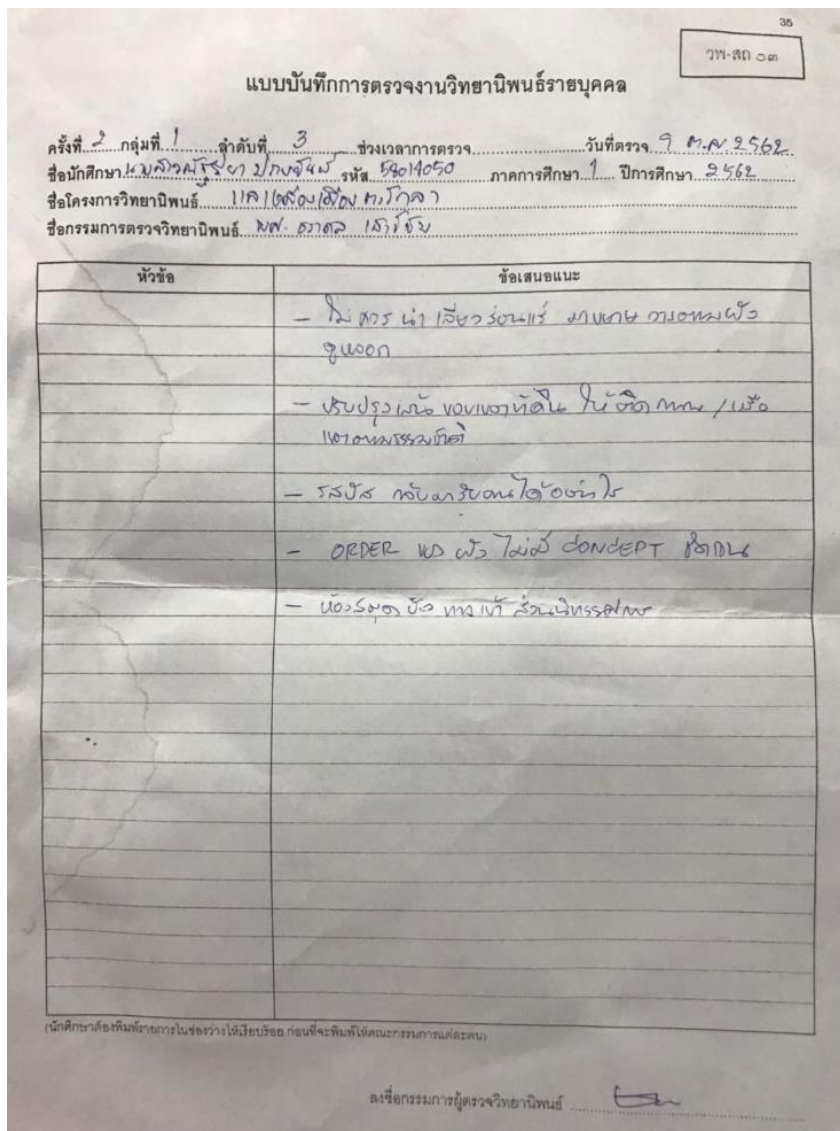 35
วพ-สถ ๐๓
แบบบันทึกการตรวจงานวิทยานิพนธ์รายบุคคล
ครั้งที่ 2 กลุ่มที่ 1 ลำดับที่ 3 ช่วงเวลาการตรวจ วันที่ตรวจ 9 ต.ค. 2562
ชื่อนักศึกษา นางสาว รหัส 59014050 ภาคการศึกษา 1 ปีการศึกษา 2562
ชื่อโครงการวิทยานิพนธ์
ชื่อกรรมการตรวจวิทยานิพนธ์ ผศ.
หัวข้อ ข้อเสนอแนะ
- ไม่ควร นำ เรื่อง ร่อนแร่ วางตามผัง
ดูหลอก
- ปรับปรุง เส้น ขอบเขตที่ดิน ให้ติด ถนน /
เขตตามธรรมชาติ
- รถบัส กลับมารับคนได้อย่างไร
- ORDER ของ ผัง ไม่มี CONCEPT ชัดเจน
- ห้องสมุด บัง ทางเข้า ส่วนนิทรรศการ
(นักศึกษาต้องพิมพ์รายการในช่องว่างให้เรียบร้อย ก่อนที่จะพิมพ์ให้คณะกรรมการแต่ละคน)
ลงชื่อกรรมการผู้ตรวจวิทยานิพนธ์